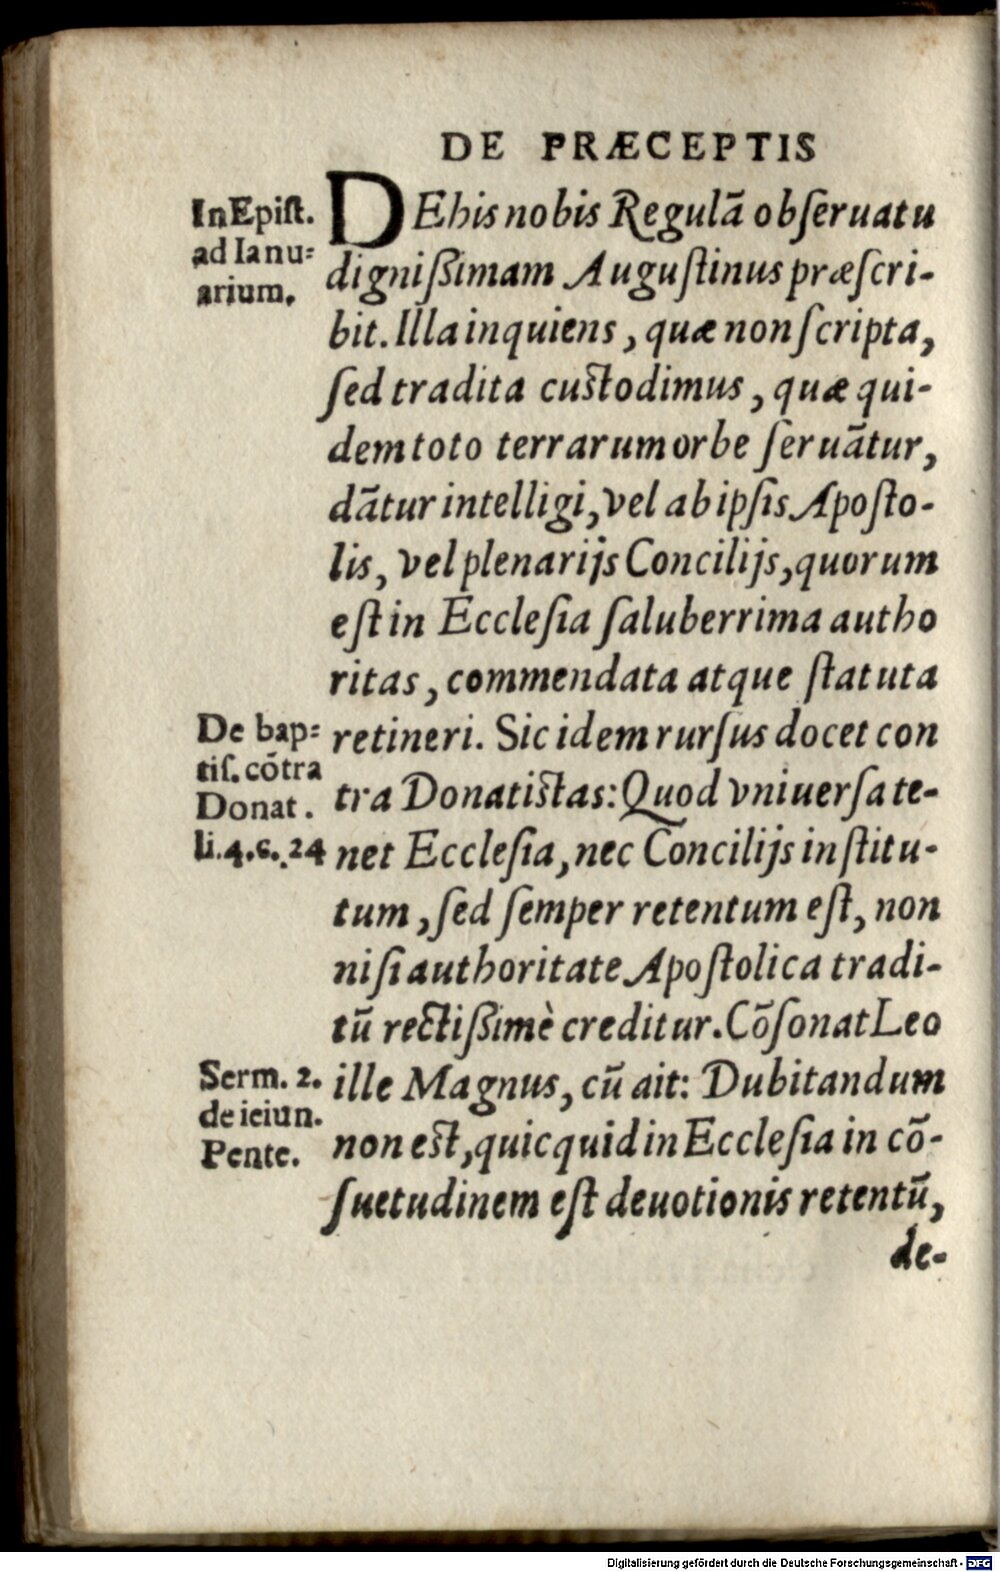 DE PRÆCEPTIS
In Epist.
ad Ianu=
arium.
DE his nobis Regulā obseruatu
dignißimam Augustinus præscri-
bit. Illa inquiens, quæ non scripta,
sed tradita custodimus, quæ qui-
dem toto terrarum orbe seruātur,
dātur intelligi, vel ab ipsis Aposto-
lis, vel plenarijs Concilijs, quorum
est in Ecclesia saluberrima autho
ritas, commendata atque statuta
retineri. Sic idem rursus docet con
tra Donatistas: Quod vniuersa te-
net Ecclesia, nec Concilijs institu-
tum, sed semper retentum est, non
nisi authoritate Apostolica tradi-
tū rectißimè creditur. Cōsonat Leo
ille Magnus, cū ait: Dubitandum
non est, quicquid in Ecclesia in cō-
suetudinem est deuotionis retentū,
de-
De bap=
tis. cōtra
Donat.
li.4.c.24
Serm. 2.
de ieiun.
Pente.
Digitalisierung gefördert durch die Deutsche Forschungsgemeinschaft - DFG